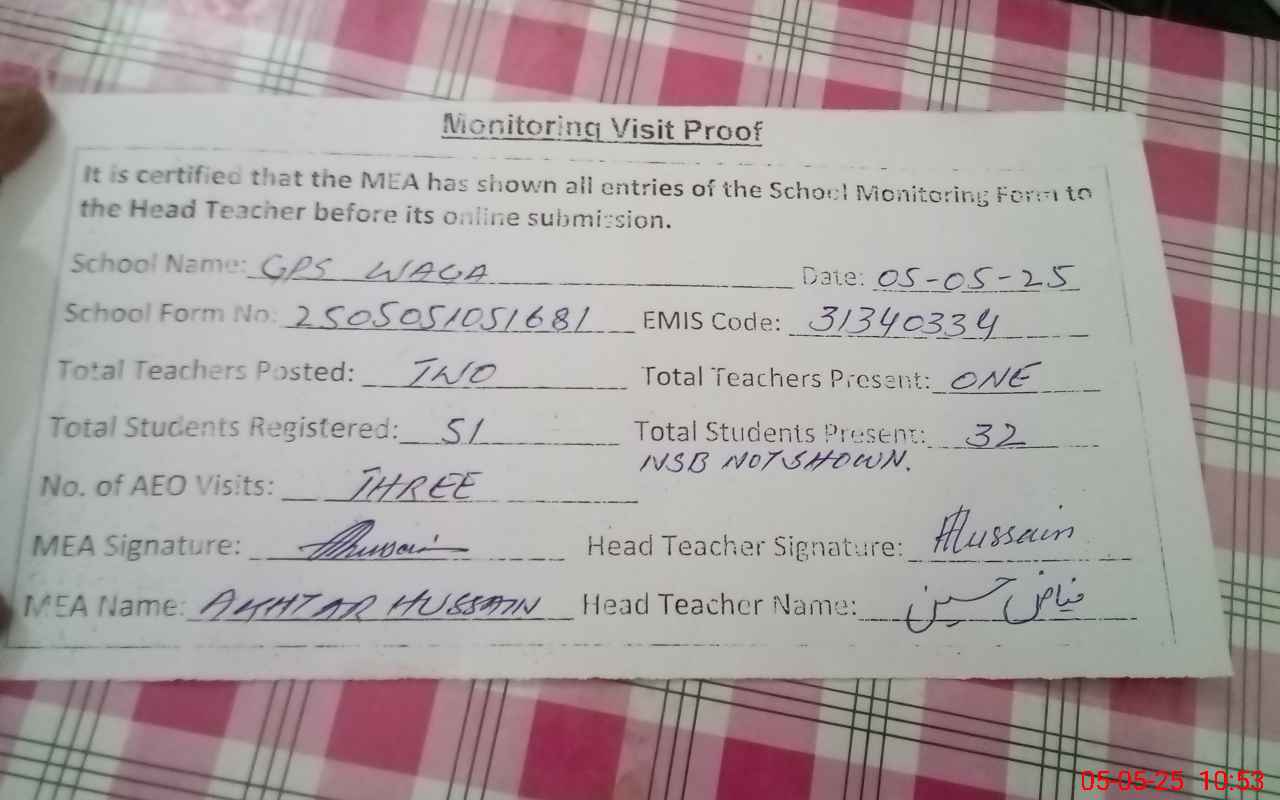 Monitoring Visit Proof
It is certified that the MEA has shown all entries of the School Monitoring Form to
the Head Teacher before its online submission.
School Name: GPS WAGA Date: 05-05-25
School Form No: 2505051051681 EMIS Code: 31340334
Total Teachers Posted: TWO Total Teachers Present: ONE
Total Students Registered: 51 Total Students Present: 32
NSB NOT SHOWN.
No. of AEO Visits: THREE
MEA Signature: Head Teacher Signature: Hussain
MEA Name: AKHTAR HUSSAIN Head Teacher Name: فیاض حسین
05-05-25 10:53